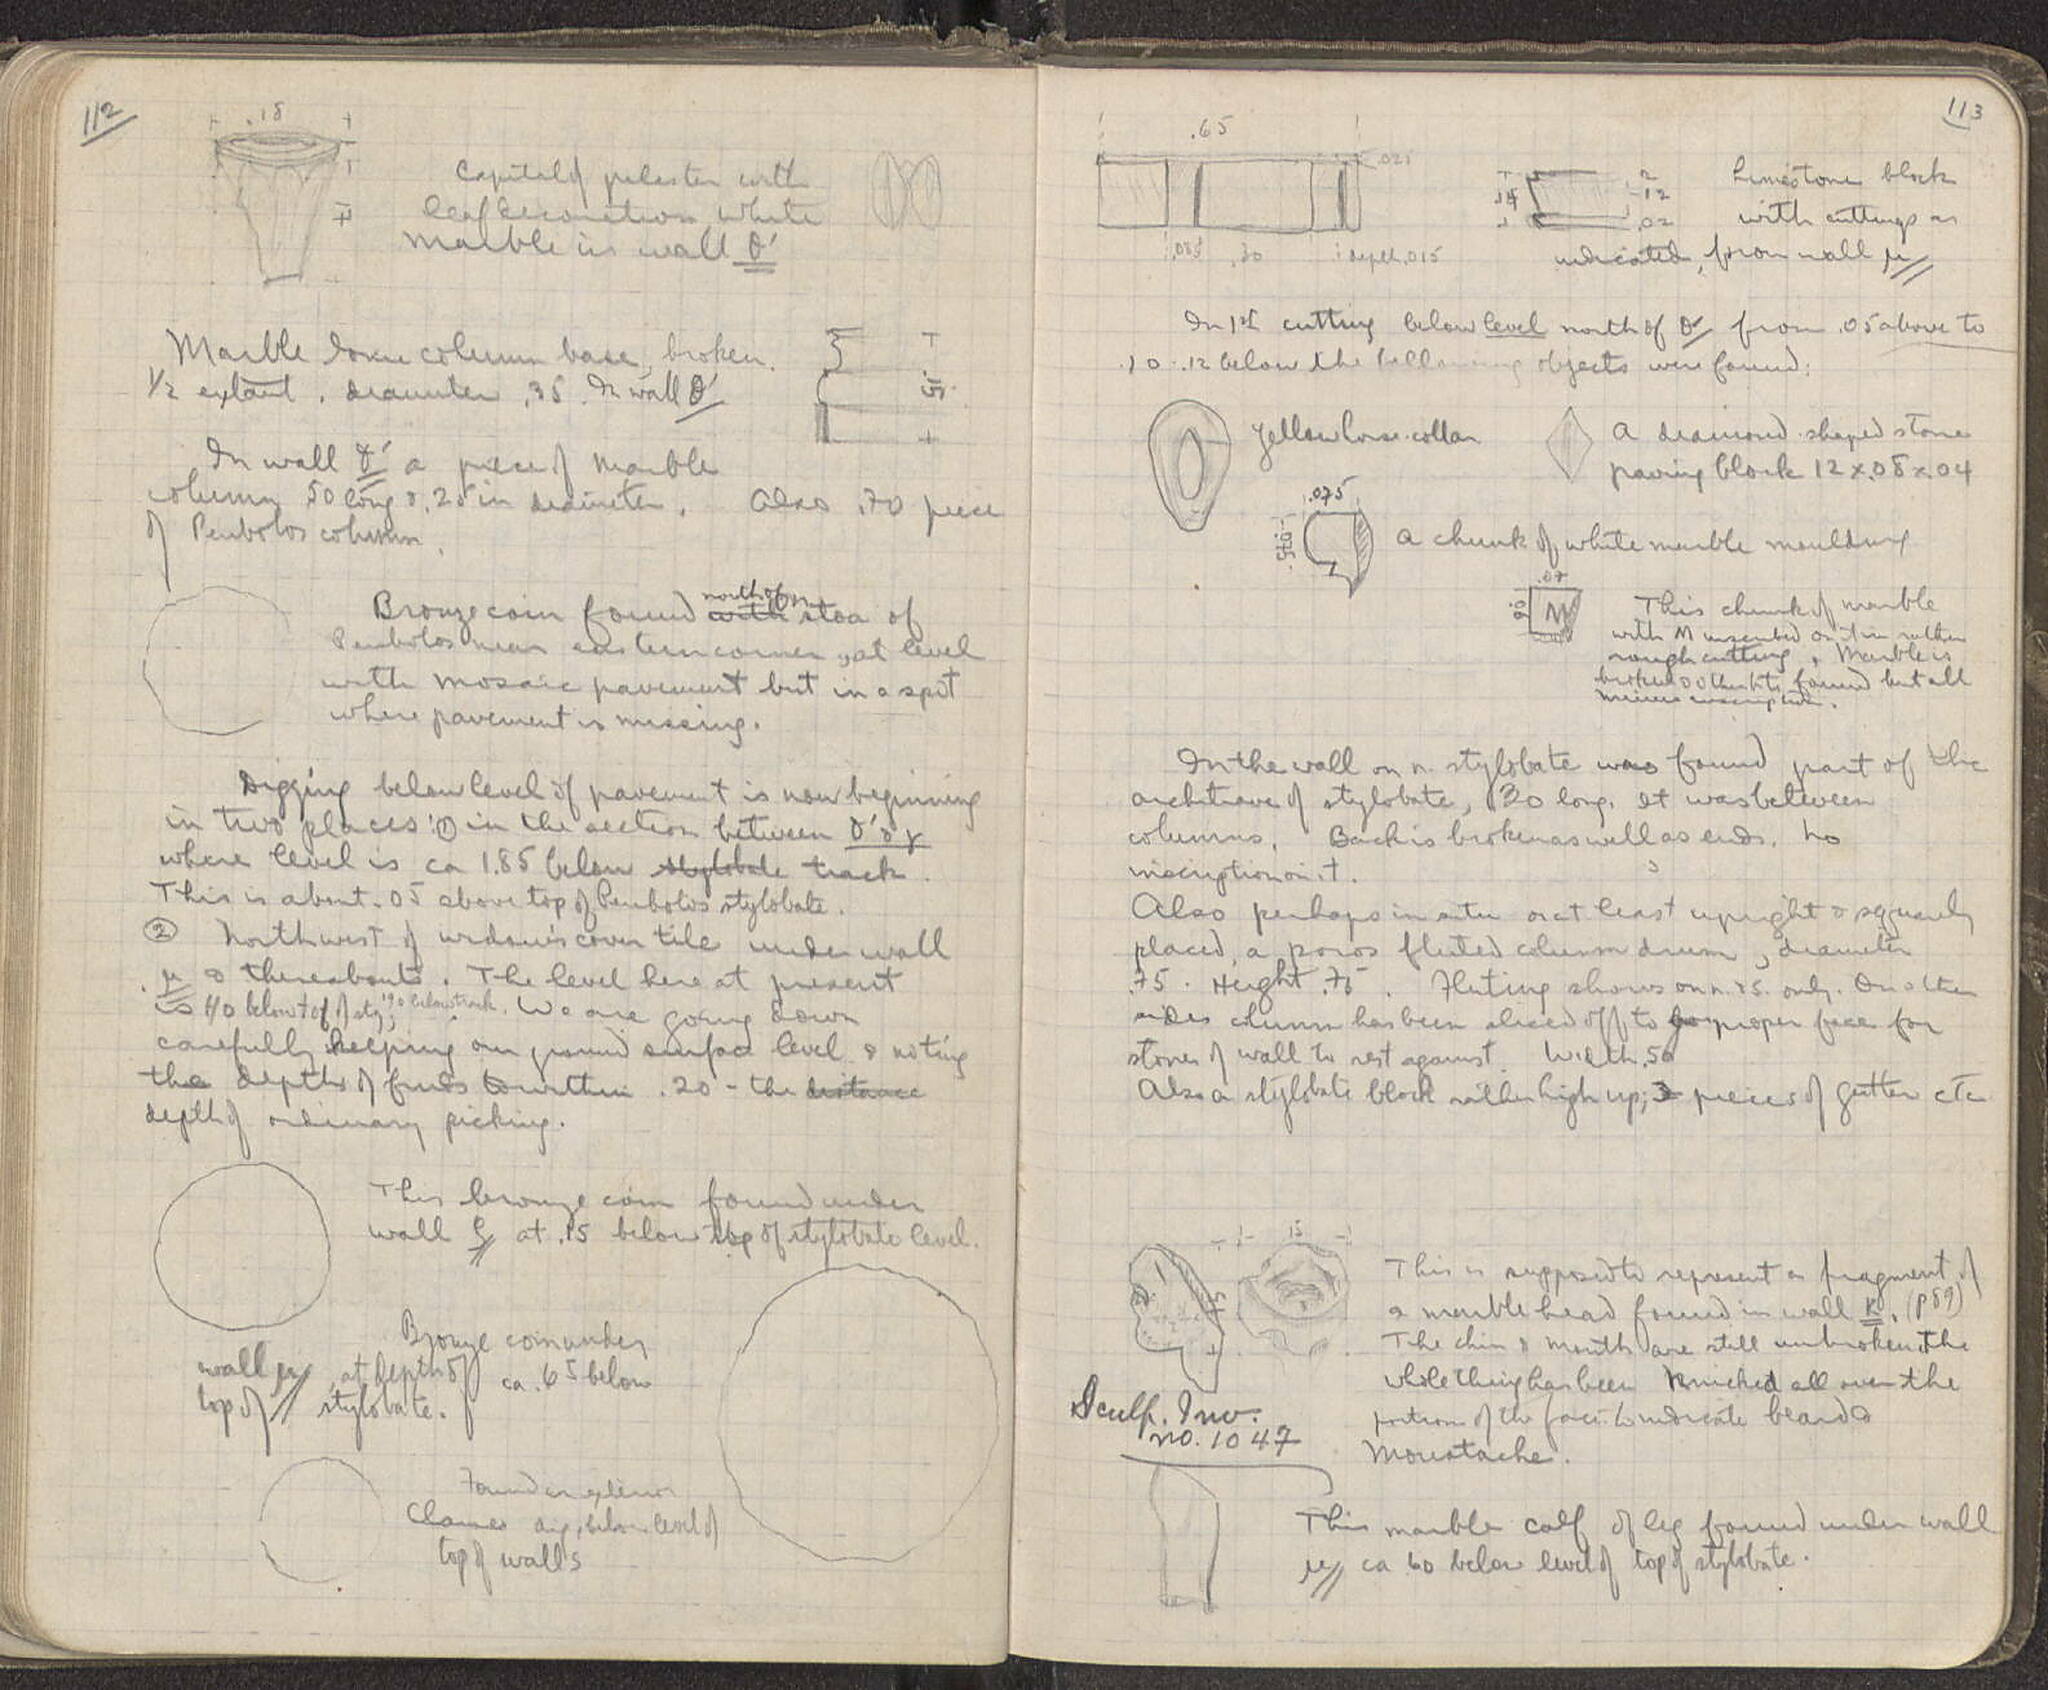 112
.18
Capital of pilaster with
leaf decoration, white
marble in wall θ'
Marble Ionic column base, broken.
1/2 extant, diameter .35. In wall θ'
.15
In wall θ' a piece of marble
column .50 long & .25 in diameter. Also .70 piece
of Peribolos column.
Bronze coin found north of with n. stoa of
Peribolos near eastern corner, at level
with mosaic pavement but in a spot
where pavement is missing.
Digging below level of pavement is now beginning
in two places: ① in the section between θ' & γ
where level is ca 1.85 below stylobate track.
This is about .05 above top of Peribolos stylobate.
② Northwest of cover tile under wall
μ & thereabouts. The level here at present
is .40 below top of sty; 1.90 below track. We are going down
carefully keeping our ground surface level & noting
the depths of finds to within .20 - the distance
depth of ordinary picking.
This bronze coin found under
wall ξ at .15 below top of stylobate level.
Bronze coin under
wall μ at depth of ca .65 below
top of stylobate.
Found in
below level of
top of walls
113
.65
.025
.085 .30 depth .015
.14
.12
.02
Limestone block
with cuttings as
indicated, from wall μ
In 1st cutting below level north of θ' from .05 above to
.10-.12 below the following objects were found:
Yellow horse-collar
A diamond-shaped stone
paving block 12 x .08 x .04
.075
A chunk of white marble moulding
.07
M
This chunk of marble
with M inscribed on it in rather
rough cutting. Marble is
broken & other bits found but all
minus inscription.
In the wall on n. stylobate was found part of the
architrave of stylobate, .30 long. It was between
columns. Back is broken as well as ends. No
inscription on it.
Also perhaps in situ or at least upright & squarely
placed, a poros fluted column drum, diameter
.75. Height .75. Fluting shows on n. & s. only. On other
sides column has been sliced off to proper face for
stones of wall to rest against. Width .50
Also a stylobate block rather high up; 3 pieces of gutter etc
.15
This is supposed to represent a fragment of
a marble head found in wall K. (p 89)
The chin & mouth are still unbroken, the
whole thing has been nicked all over the
portion of the face to indicate beard &
moustache.
Sculp. Inv.
no. 1047
This marble calf of leg found under wall
μ ca .60 below level of top of stylobate.